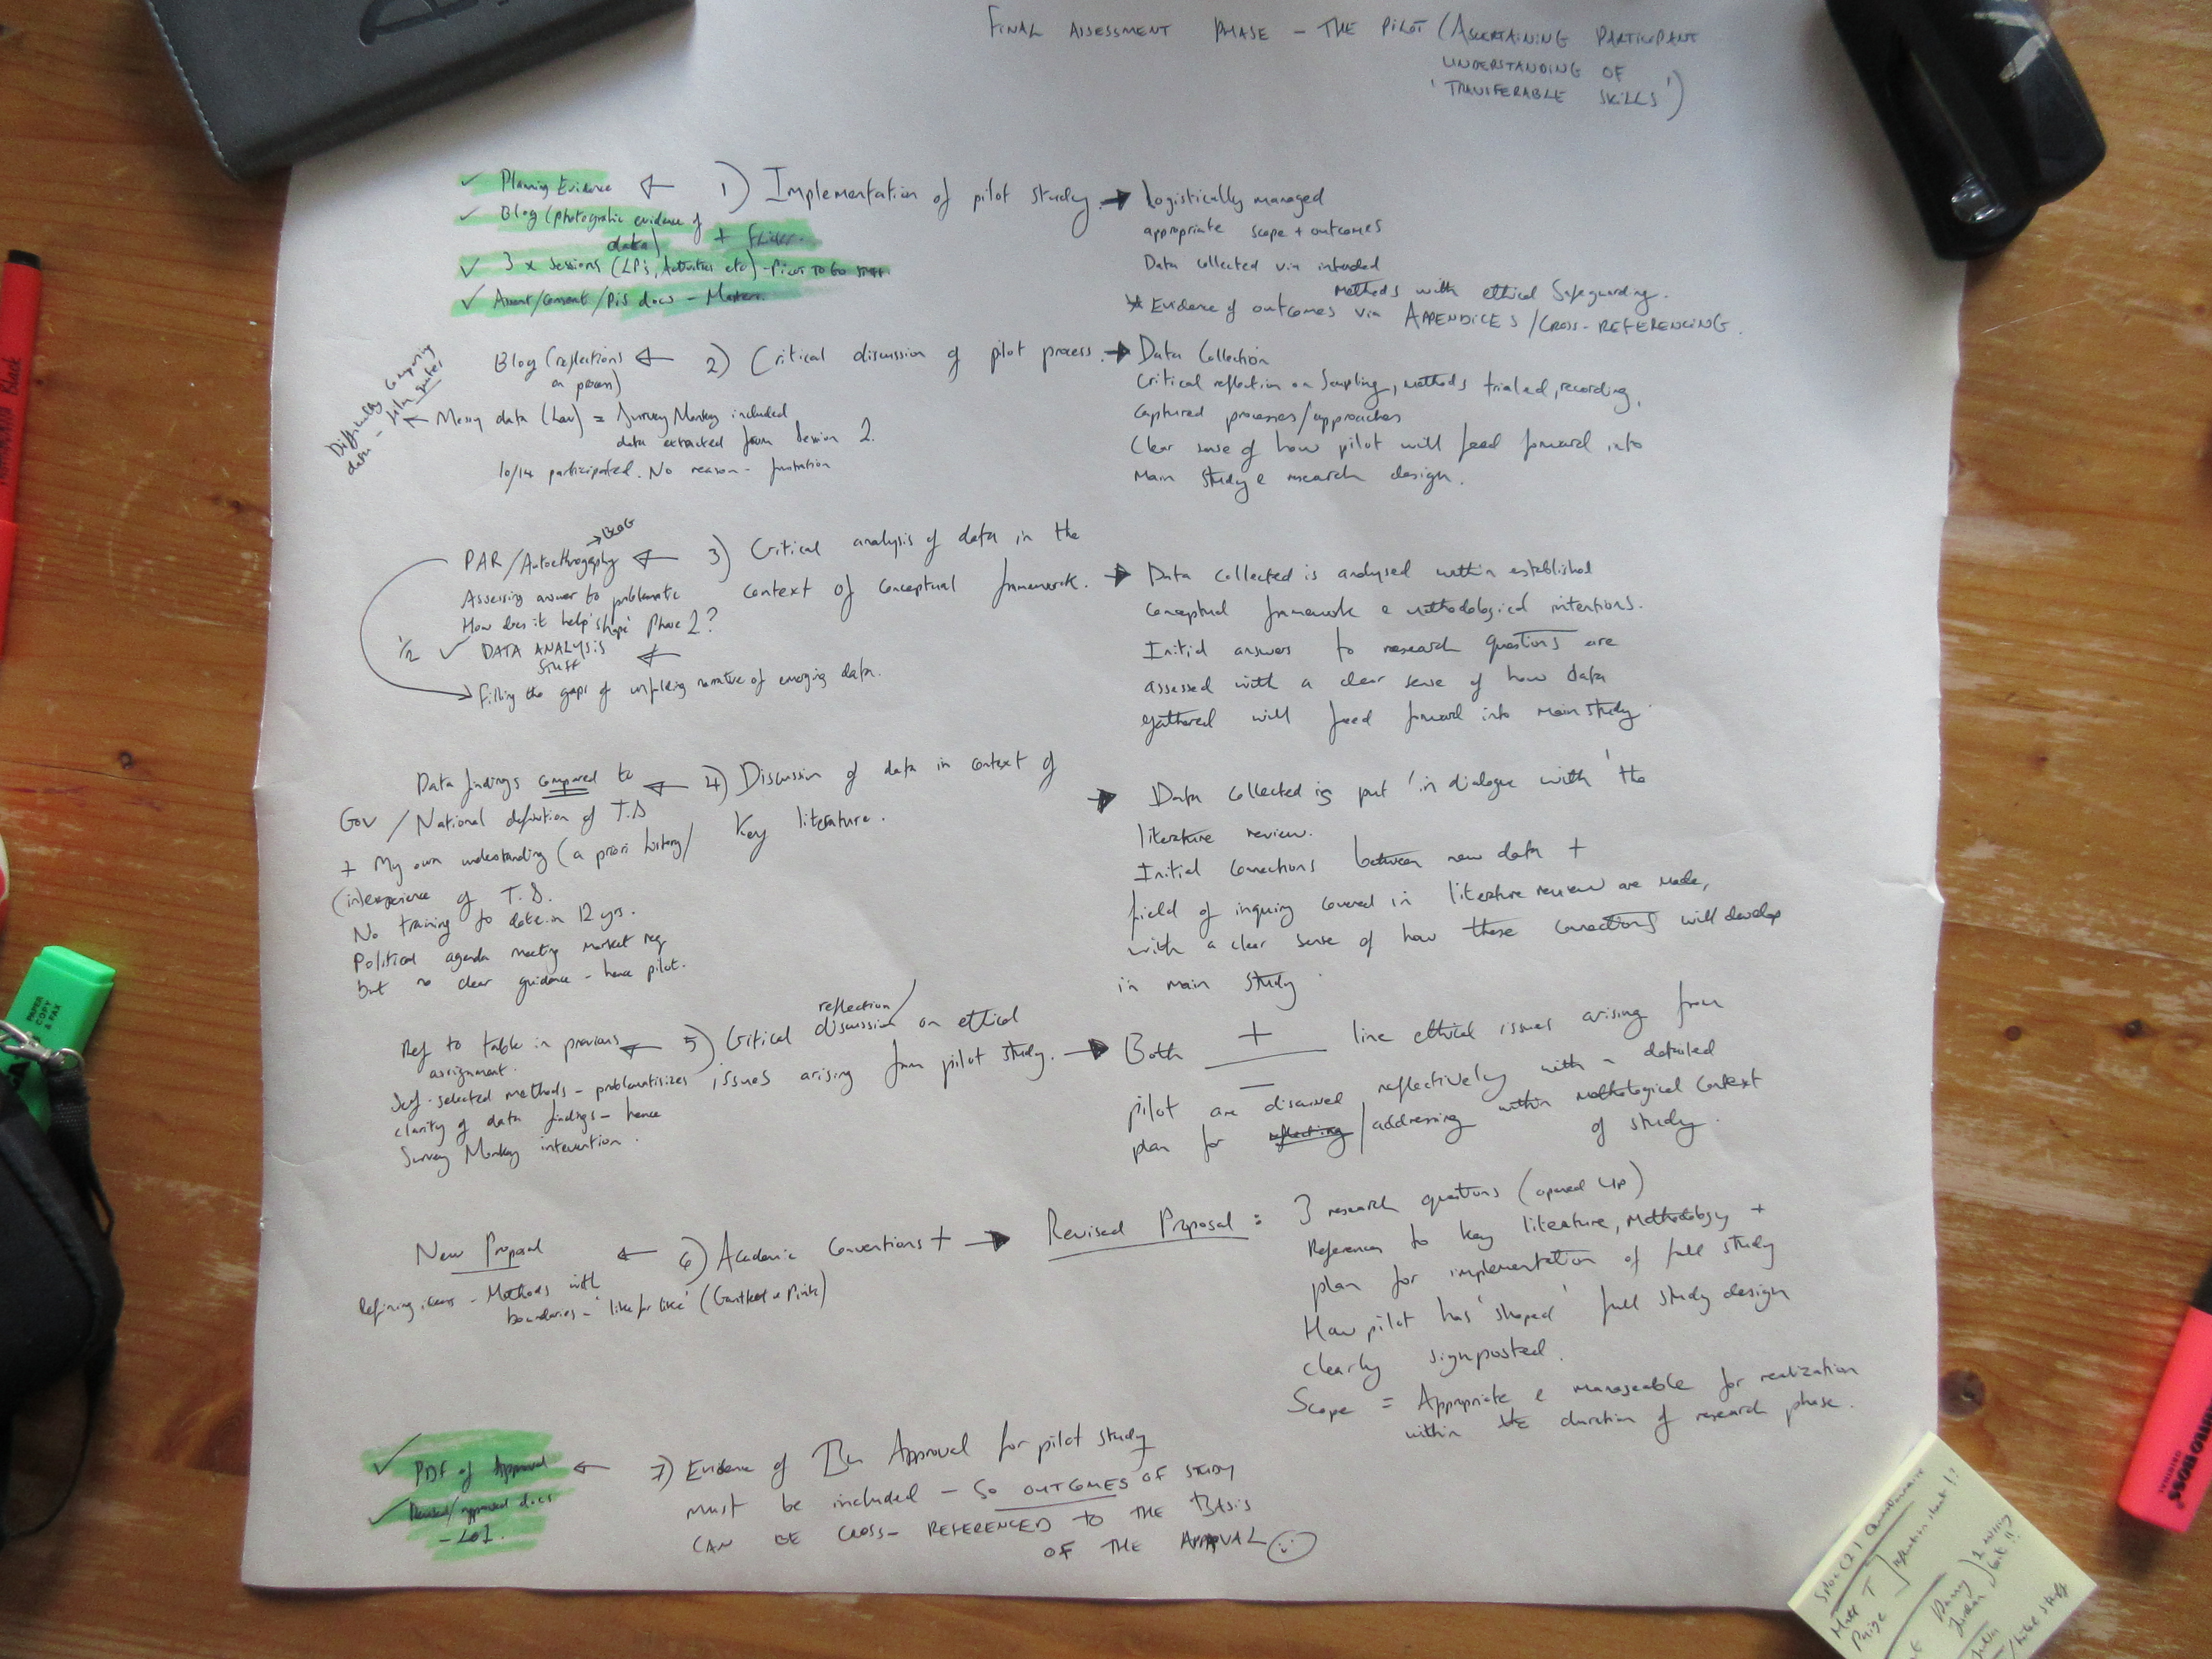 FINAL ASSESSMENT PHASE – THE PILOT (ASCERTAINING PARTICIPANT
UNDERSTANDING OF
'TRANSFERABLE SKILLS')
✓ Planning Evidence ← 1) Implementation of pilot study. → Logistically managed
✓ Blog (photographic evidence of
data) + Flickr.
appropriate scope + outcomes
✓ 3 x Sessions (LP's, Activities etc) -
Data collected via intended
Methods with ethical Safeguarding.
✓ Assent/Consent/PIS docs –
* Evidence of outcomes via APPENDICES / CROSS-REFERENCING.
Blog (reflections ← 2) Critical discussion of pilot process. → Data Collection
on process)
Critical reflection on Sampling, methods trialed, recording,
Difficulty comparing
data –
← Messy data (Law) = Survey Monkey included
Captured processes/approaches
data extracted from Session 2.
Clear sense of how pilot will feed forward into
10/14 participated. No reason –
Main Study & research design.
→ BLOG
PAR/Autoethnography ← 3) Critical analysis of data in the
context of conceptual framework. → Data collected is analysed within established
Assessing answer to problematic
conceptual framework & methodological intentions.
How does it help 'shape' Phase 2?
Initial answers to research questions are
1/2 ✓ DATA ANALYSIS
STUFF ←
assessed with a clear sense of how data
→ filling the gaps of unfolding narrative of emerging data.
gathered will feed forward into main study.
Data findings compared to ← 4) Discussion of data in context of
Key literature.
→ Data collected is put 'in dialogue with' the
Gov / National definition of T.S
literature review.
+ My own understanding (a priori history/
Initial connections between new data +
(inexperience of T.S.
field of inquiry covered in literature review are made,
No training to date in 12 yrs.
with a clear sense of how these connections will develop
Political agenda meeting market req
in main study.
but no clear guidance – hence pilot.
reflection/
Ref to table in previous ← 5) Critical discussion on ethical
assignment.
issues arising from pilot study. → Both + line ethical issues arising from
–
Self-selected methods – problematisizes
pilot are discussed reflectively with a detailed
clarity of data findings – hence
plan for reflecting/addressing within methological context
of study.
Survey Monkey intervention.
New Proposal ← 6) Academic Conventions + → Revised Proposal : 3 research questions (opened up)
References to key literature, methodology +
Refining ideas – Methods with
boundaries – 'like for like' (Gauntlett & Pink)
plan for implementation of full study
How pilot has 'shaped' full study design
clearly signposted.
Scope = Appropriate & manageable for realization
within the duration of research phase.
✓ PDF of Approval ← 7) Evidence of Approval for pilot study
✓ Revised/approved docs
– LOI.
must be included – SO OUTCOMES OF STUDY
CAN BE CROSS-REFERENCED TO THE BASIS
OF THE APPROVAL
PAPER
COPY
& FAX
Black
BOSS
ORIGINAL
Questionnaire
Paige
Danny
Jordan
2 missing